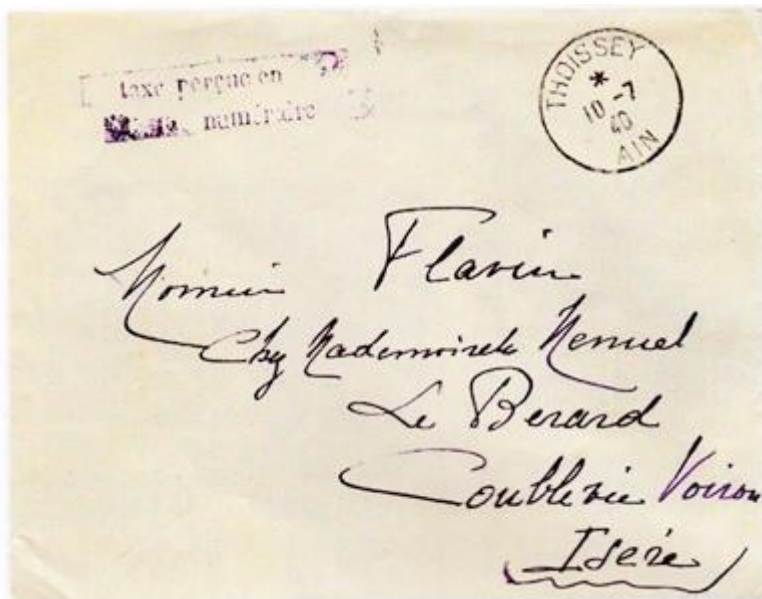 taxe perçue en
numéraire
THOISSEY
*
10-7
40
AIN
Monsieur Flavin
Chez Mademoiselle
Le Berard
Coublevie Voiron
Isère